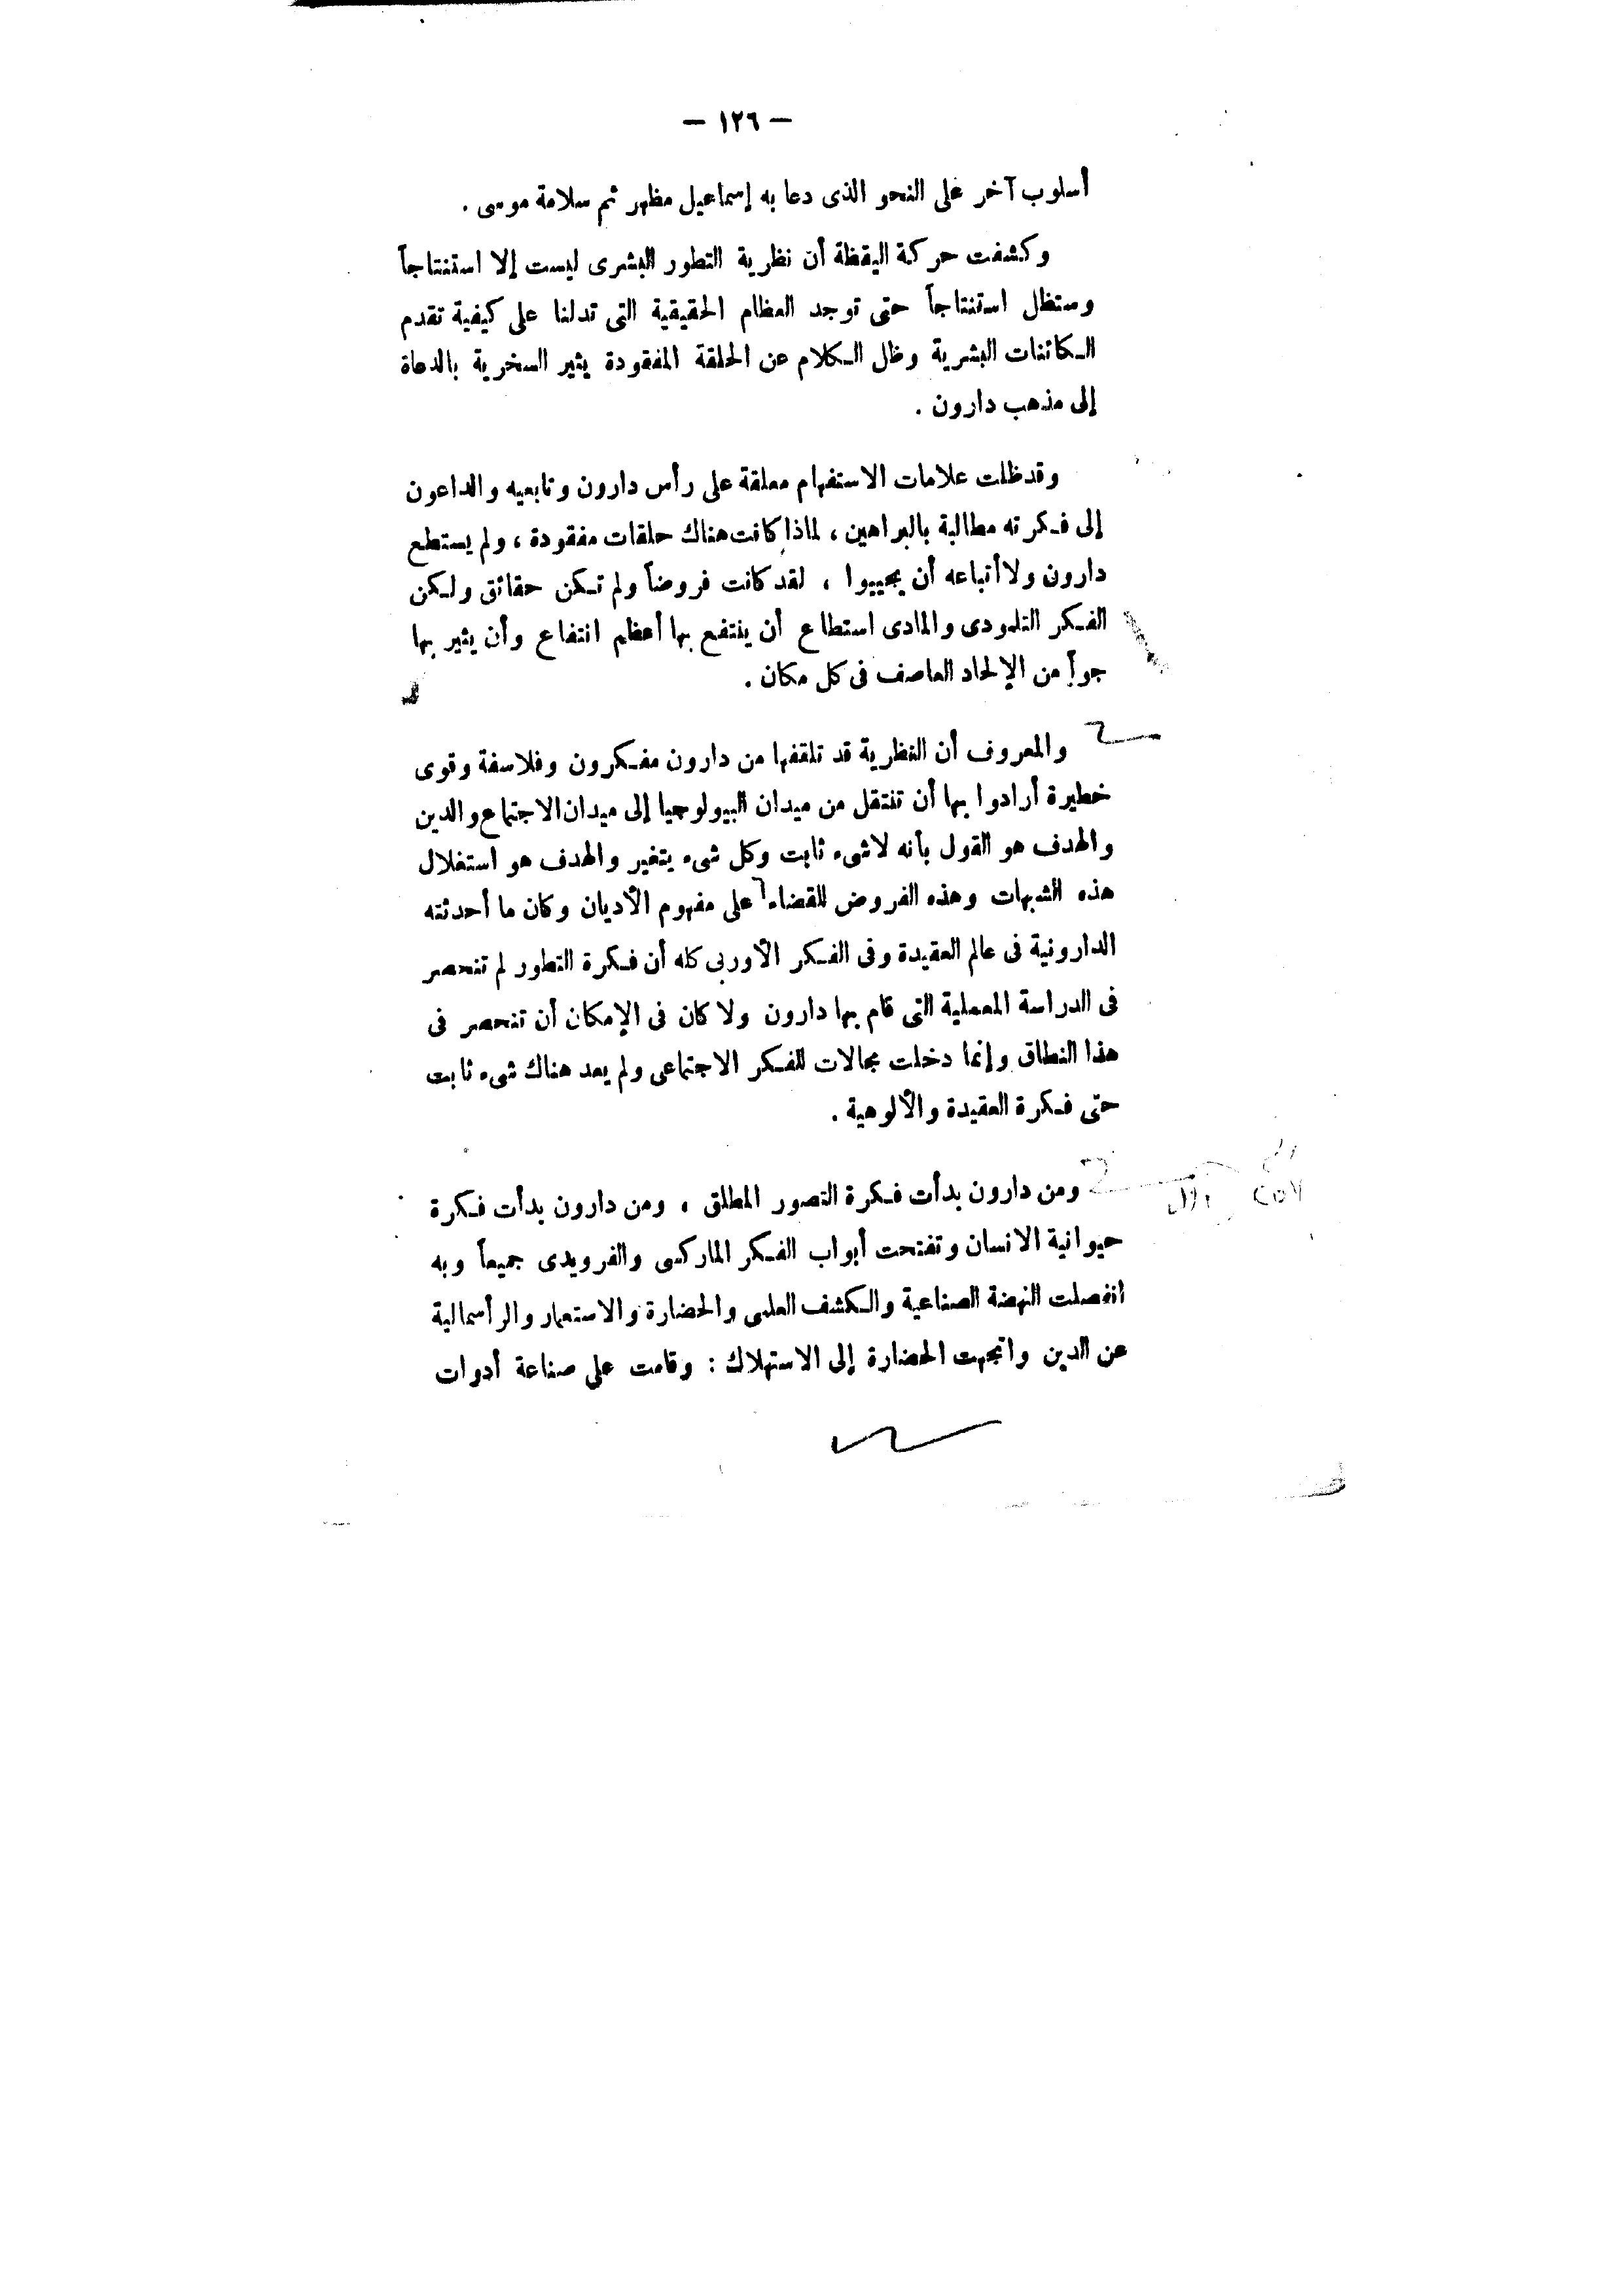 — ١٢٦ —
أسلوب آخر على النحو الذى دعا به إسماعيل مظهر ثم سلامة موسى .
وكشفت حركة اليقظة أن نظرية التطور البشرى ليست إلا استنتاجاً
وستظل استنتاجاً حتى توجد العظام الحقيقية التى تدلنا على كيفية تقدم
الكائنات البشرية وظل الكلام عن الحلقة المفقودة يثير السخرية بالدعاة
إلى مذهب دارون .
وقد ظلت علامات الاستفهام معلقة على رأس دارون وتابعيه والداعون
إلى فكرته مطالبة بالبراهين ، لماذا كانت هناك حلقات مفقودة ، ولم يستطع
دارون ولا أتباعه أن يجيبوا ، لقد كانت فروضاً ولم تكن حقائق ولكن
الفكر التلمودى والمادى استطاع أن ينتفع بها أعظم انتفاع وأن يثير بها
جواً من الإلحاد العاصف فى كل مكان .
والمعروف أن النظرية قد تلقفها من دارون مفكرون وفلاسفة وقوى
خطيرة أرادوا بها أن تنتقل من ميدان البيولوجيا إلى ميدان الاجتماع والدين
والهدف هو القول بأنه لاشىء ثابت وكل شىء يتغير والهدف هو استغلال
هذه الشبهات وهذه الفروض للقضاء على مفهوم الأديان وكان ما أحدثته
الدارونية فى عالم العقيدة وفى الفكر الأوربى كله أن فكرة التطور لم تنحصر
فى الدراسة المعملية التى قام بها دارون ولا كان فى الإمكان أن تنحصر فى
هذا النطاق وإنما دخلت مجالات للفكر الاجتماعى ولم يعد هناك شىء ثابت
حتى فكرة العقيدة والألوهية .
ومن دارون بدأت فكرة التصور المطلق ، ومن دارون بدأت فكرة
حيوانية الانسان وتفتحت أبواب الفكر الماركسى والفرويدى جميعاً وبه
انفصلت النهضة الصناعية والكشف العلمى والحضارة والاستعمار والرأسمالية
عن الدين واتجهت الحضارة إلى الاستهلاك : وقامت على صناعة أدوات